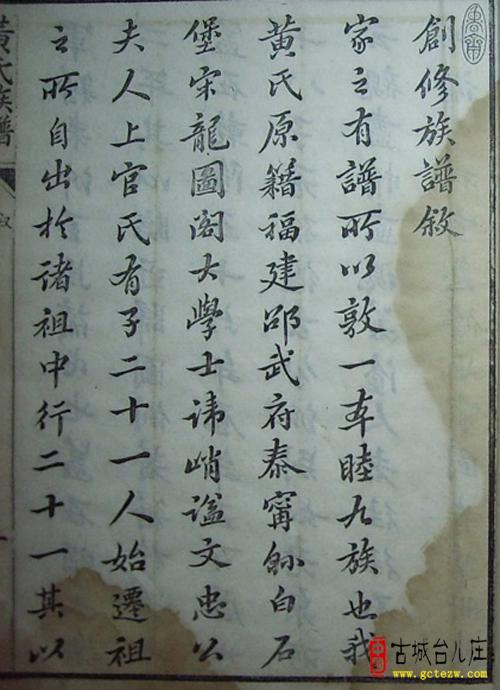 創修族譜敘
家之有譜所以敦一本睦九族也我
黃氏原籍福建邵武府泰寧縣白石
堡宋龍圖閣大學士諱峭謚文忠公
夫人上官氏有子二十一人始遷祖
之所自出於諸祖中行二十一其以
黃氏族譜
古城台儿庄
www.gctezw.com